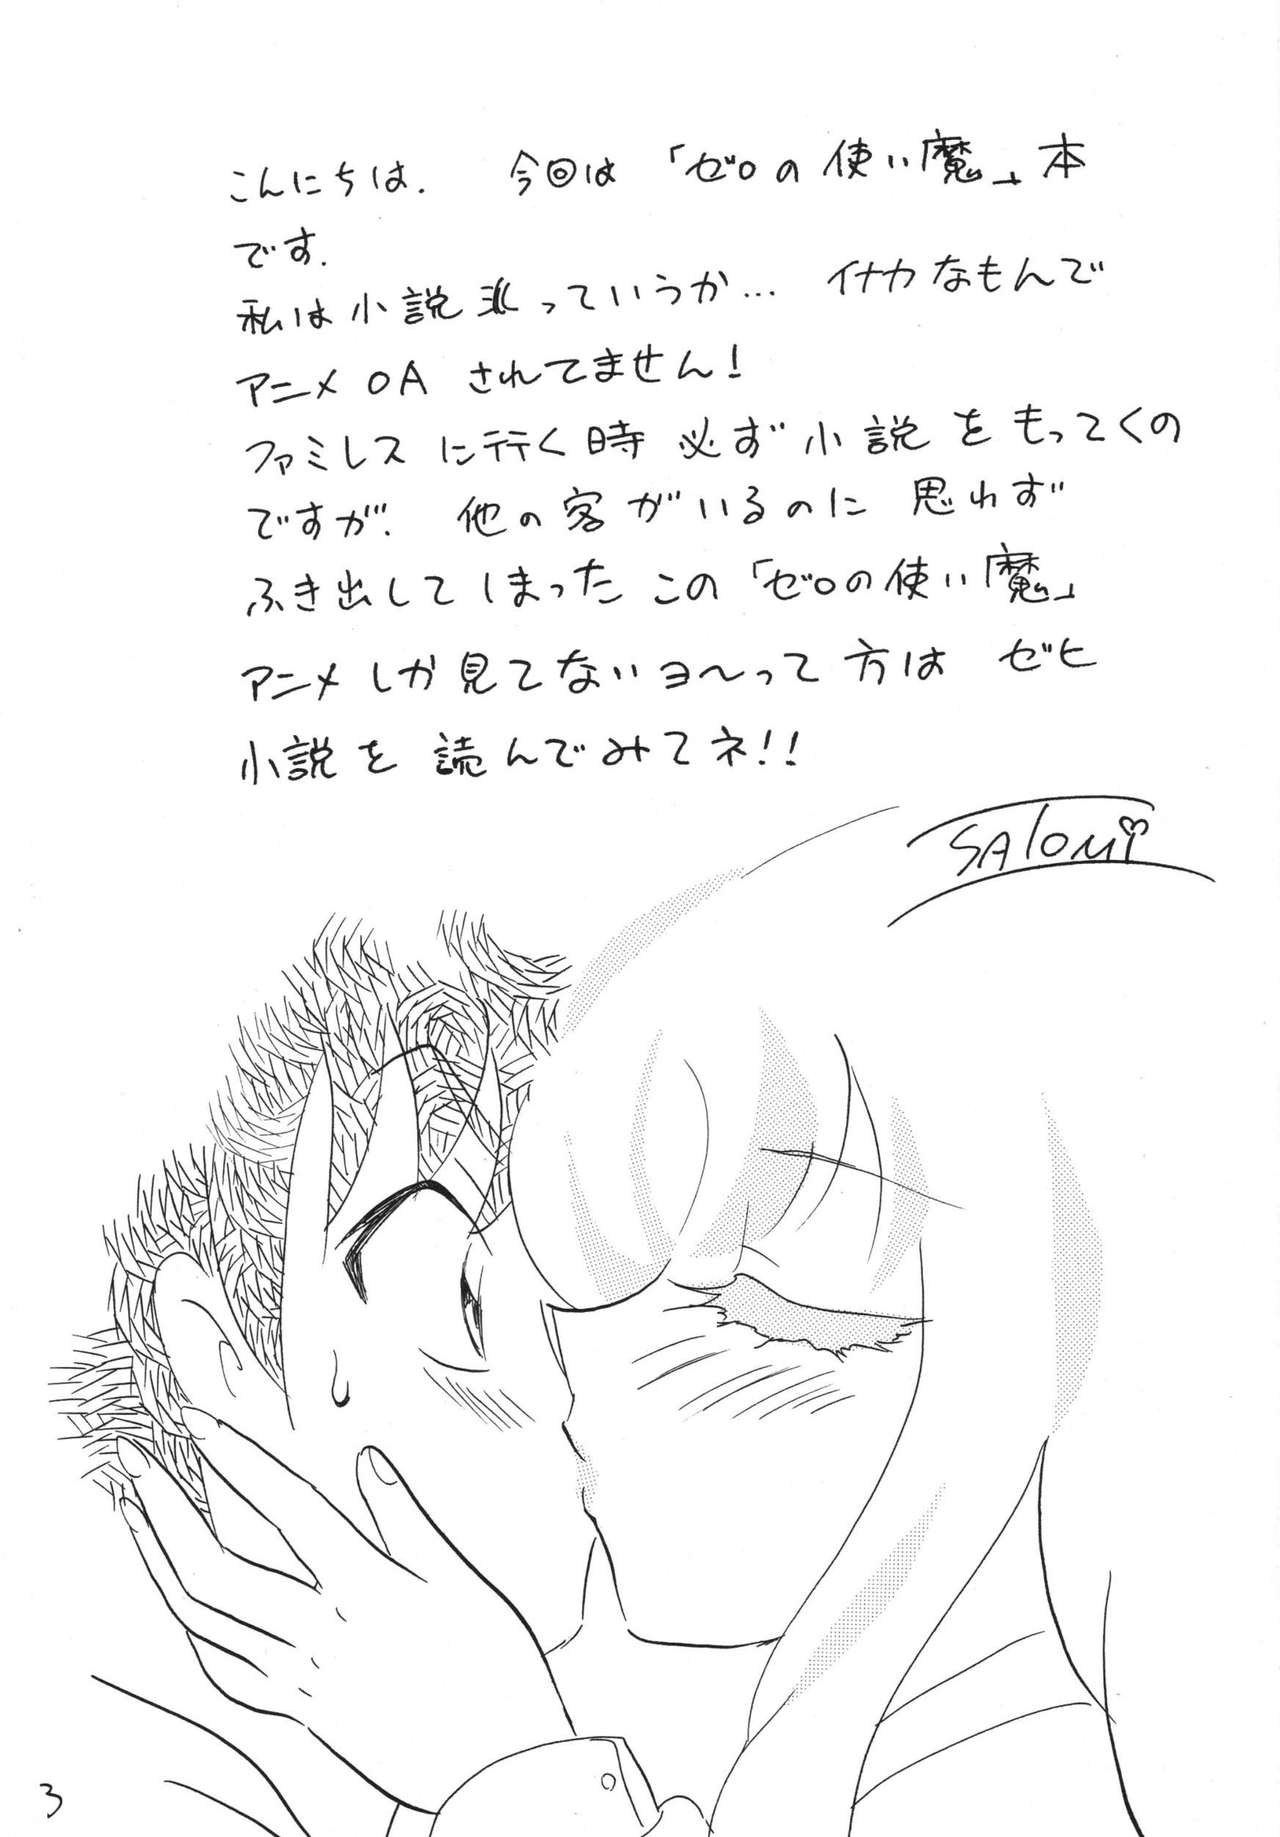 こんにちは. 今回は「ゼロの使い魔」本
です.
私は小説派っていうか… イナカなもんで
アニメOA されてません!
ファミレスに行く時 必ず小説をもってくの
ですが. 他の客がいるのに 思わず
ふき出してしまった この「ゼロの使い魔」
アニメしか見てないヨ〜って方は ゼヒ
小説を 読んでみてネ!!
SAlOMi
3